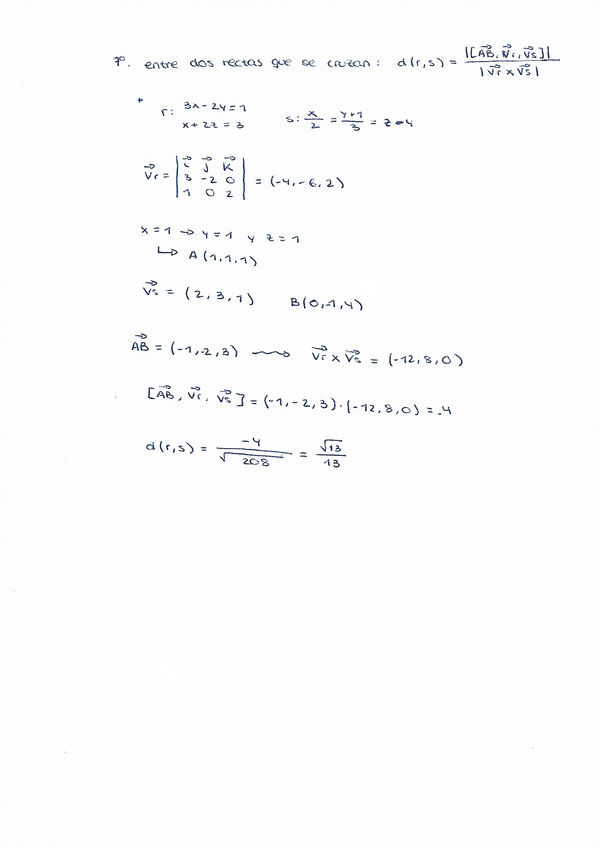 7º. entre dos rectas que se cruzan: d(r,s) = |[AB, Vr, Vs]| / |Vr x Vs|
* r: 3x - 2y = 1 s: x/2 = y+1/3 = z-4
x + 2z = 3
Vr = | i j k |
| 3 -2 0 | = (-4, -6, 2)
| 1 0 2 |
x = 1 → y = 1 y z = 1
↳ A (1,1,1)
Vs = (2, 3, 1) B(0,-1,4)
AB = (-1,-2,3) ⟿ Vr x Vs = (-12, 8, 0)
[AB, Vr, Vs] = (-1, -2, 3)·(-12, 8, 0) = -4
d(r,s) = -4/√208 = √13/13